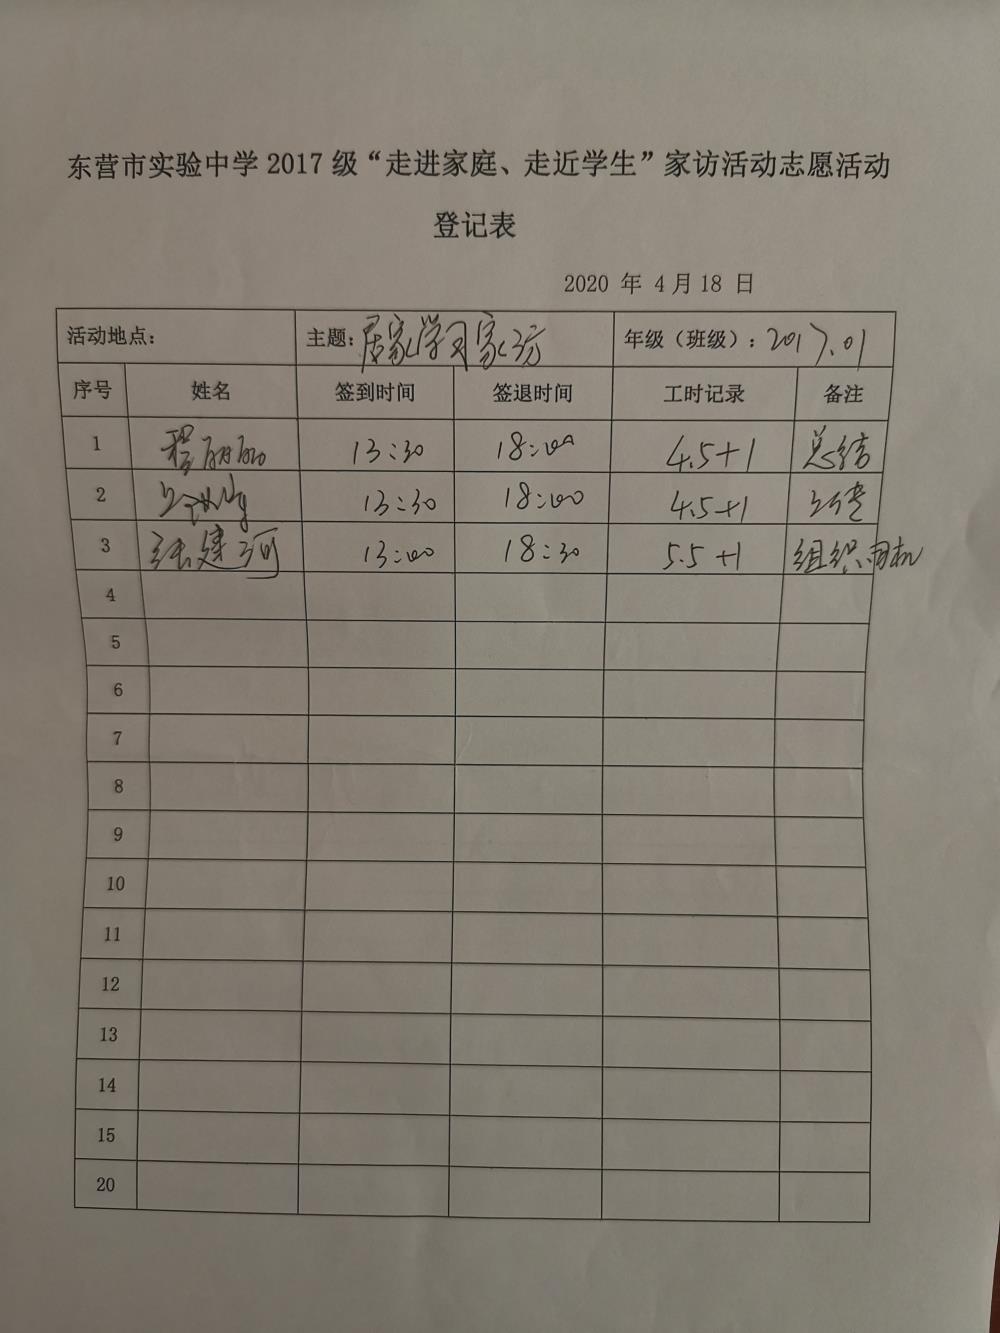 东营市实验中学 2017 级“走进家庭、走近学生”家访活动志愿活动
登记表
2020 年 4月18 日
活动地点： 主题：居家学习家访 年级（班级）：2017.01
序号 姓名 签到时间 签退时间 工时记录 备注
1 程丽丽 13:30 18:00 4.5+1 总结
2 13:30 18:00 4.5+1
3 张建河 13:00 18:30 5.5+1 组织.司机
4
5
6
7
8
9
10
11
12
13
14
15
20